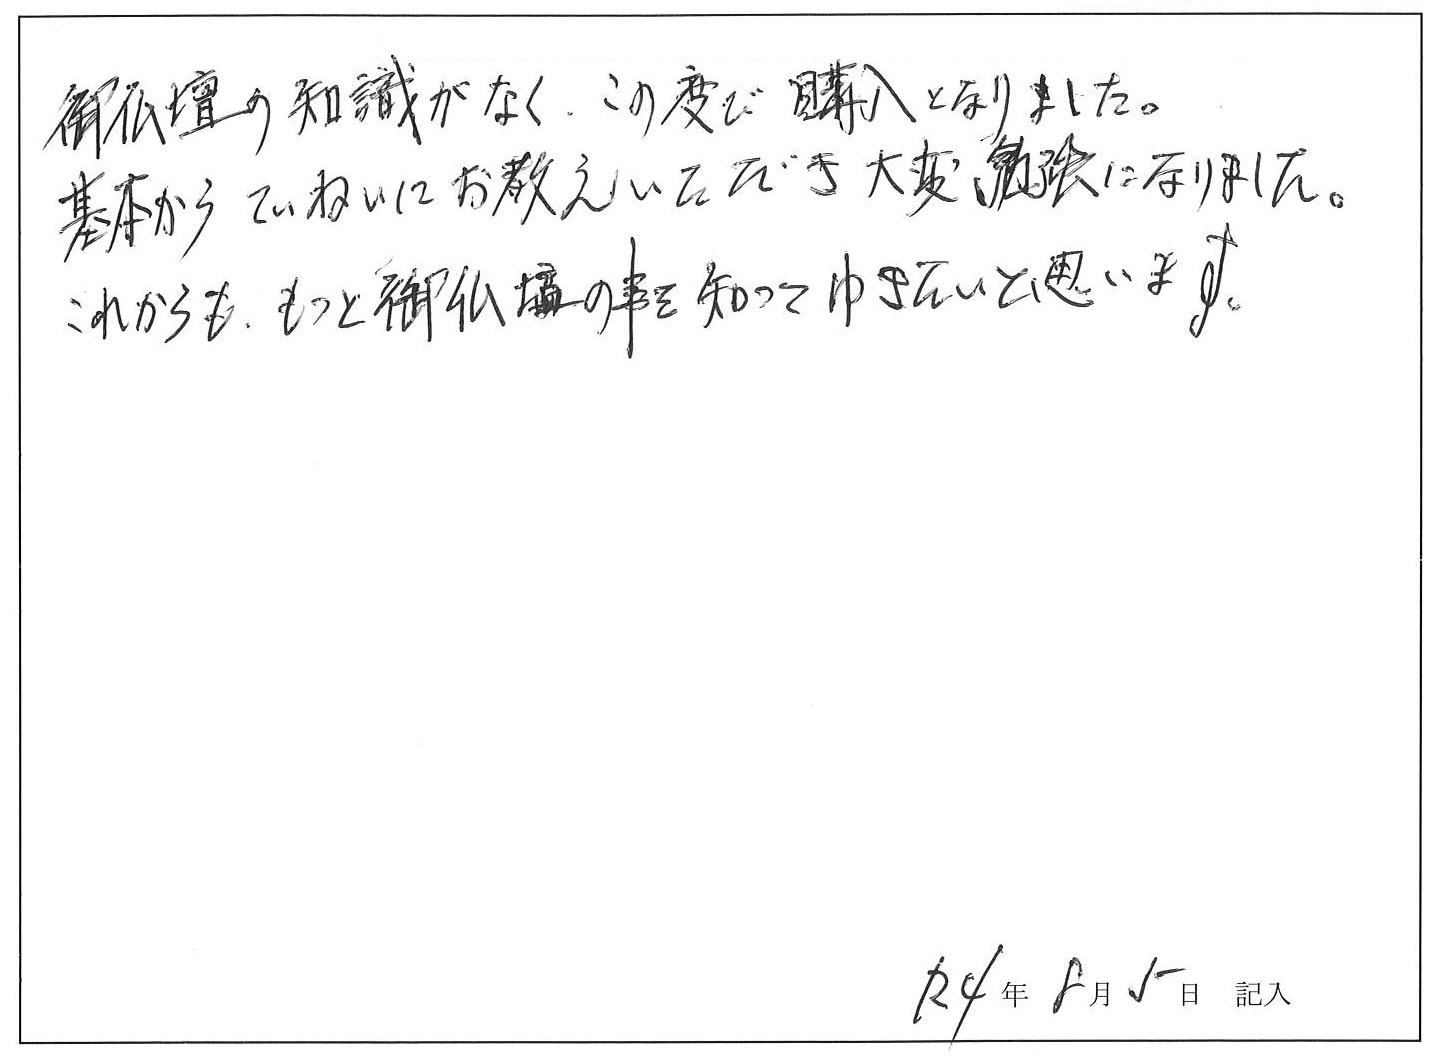 御仏壇の知識がなく、この度び購入となりました。
基本からていねいにお教えいただき大変勉強になりました。
これからも、もっと御仏壇の事を知ってゆきたいと思います。
R4年 8月 5日 記入